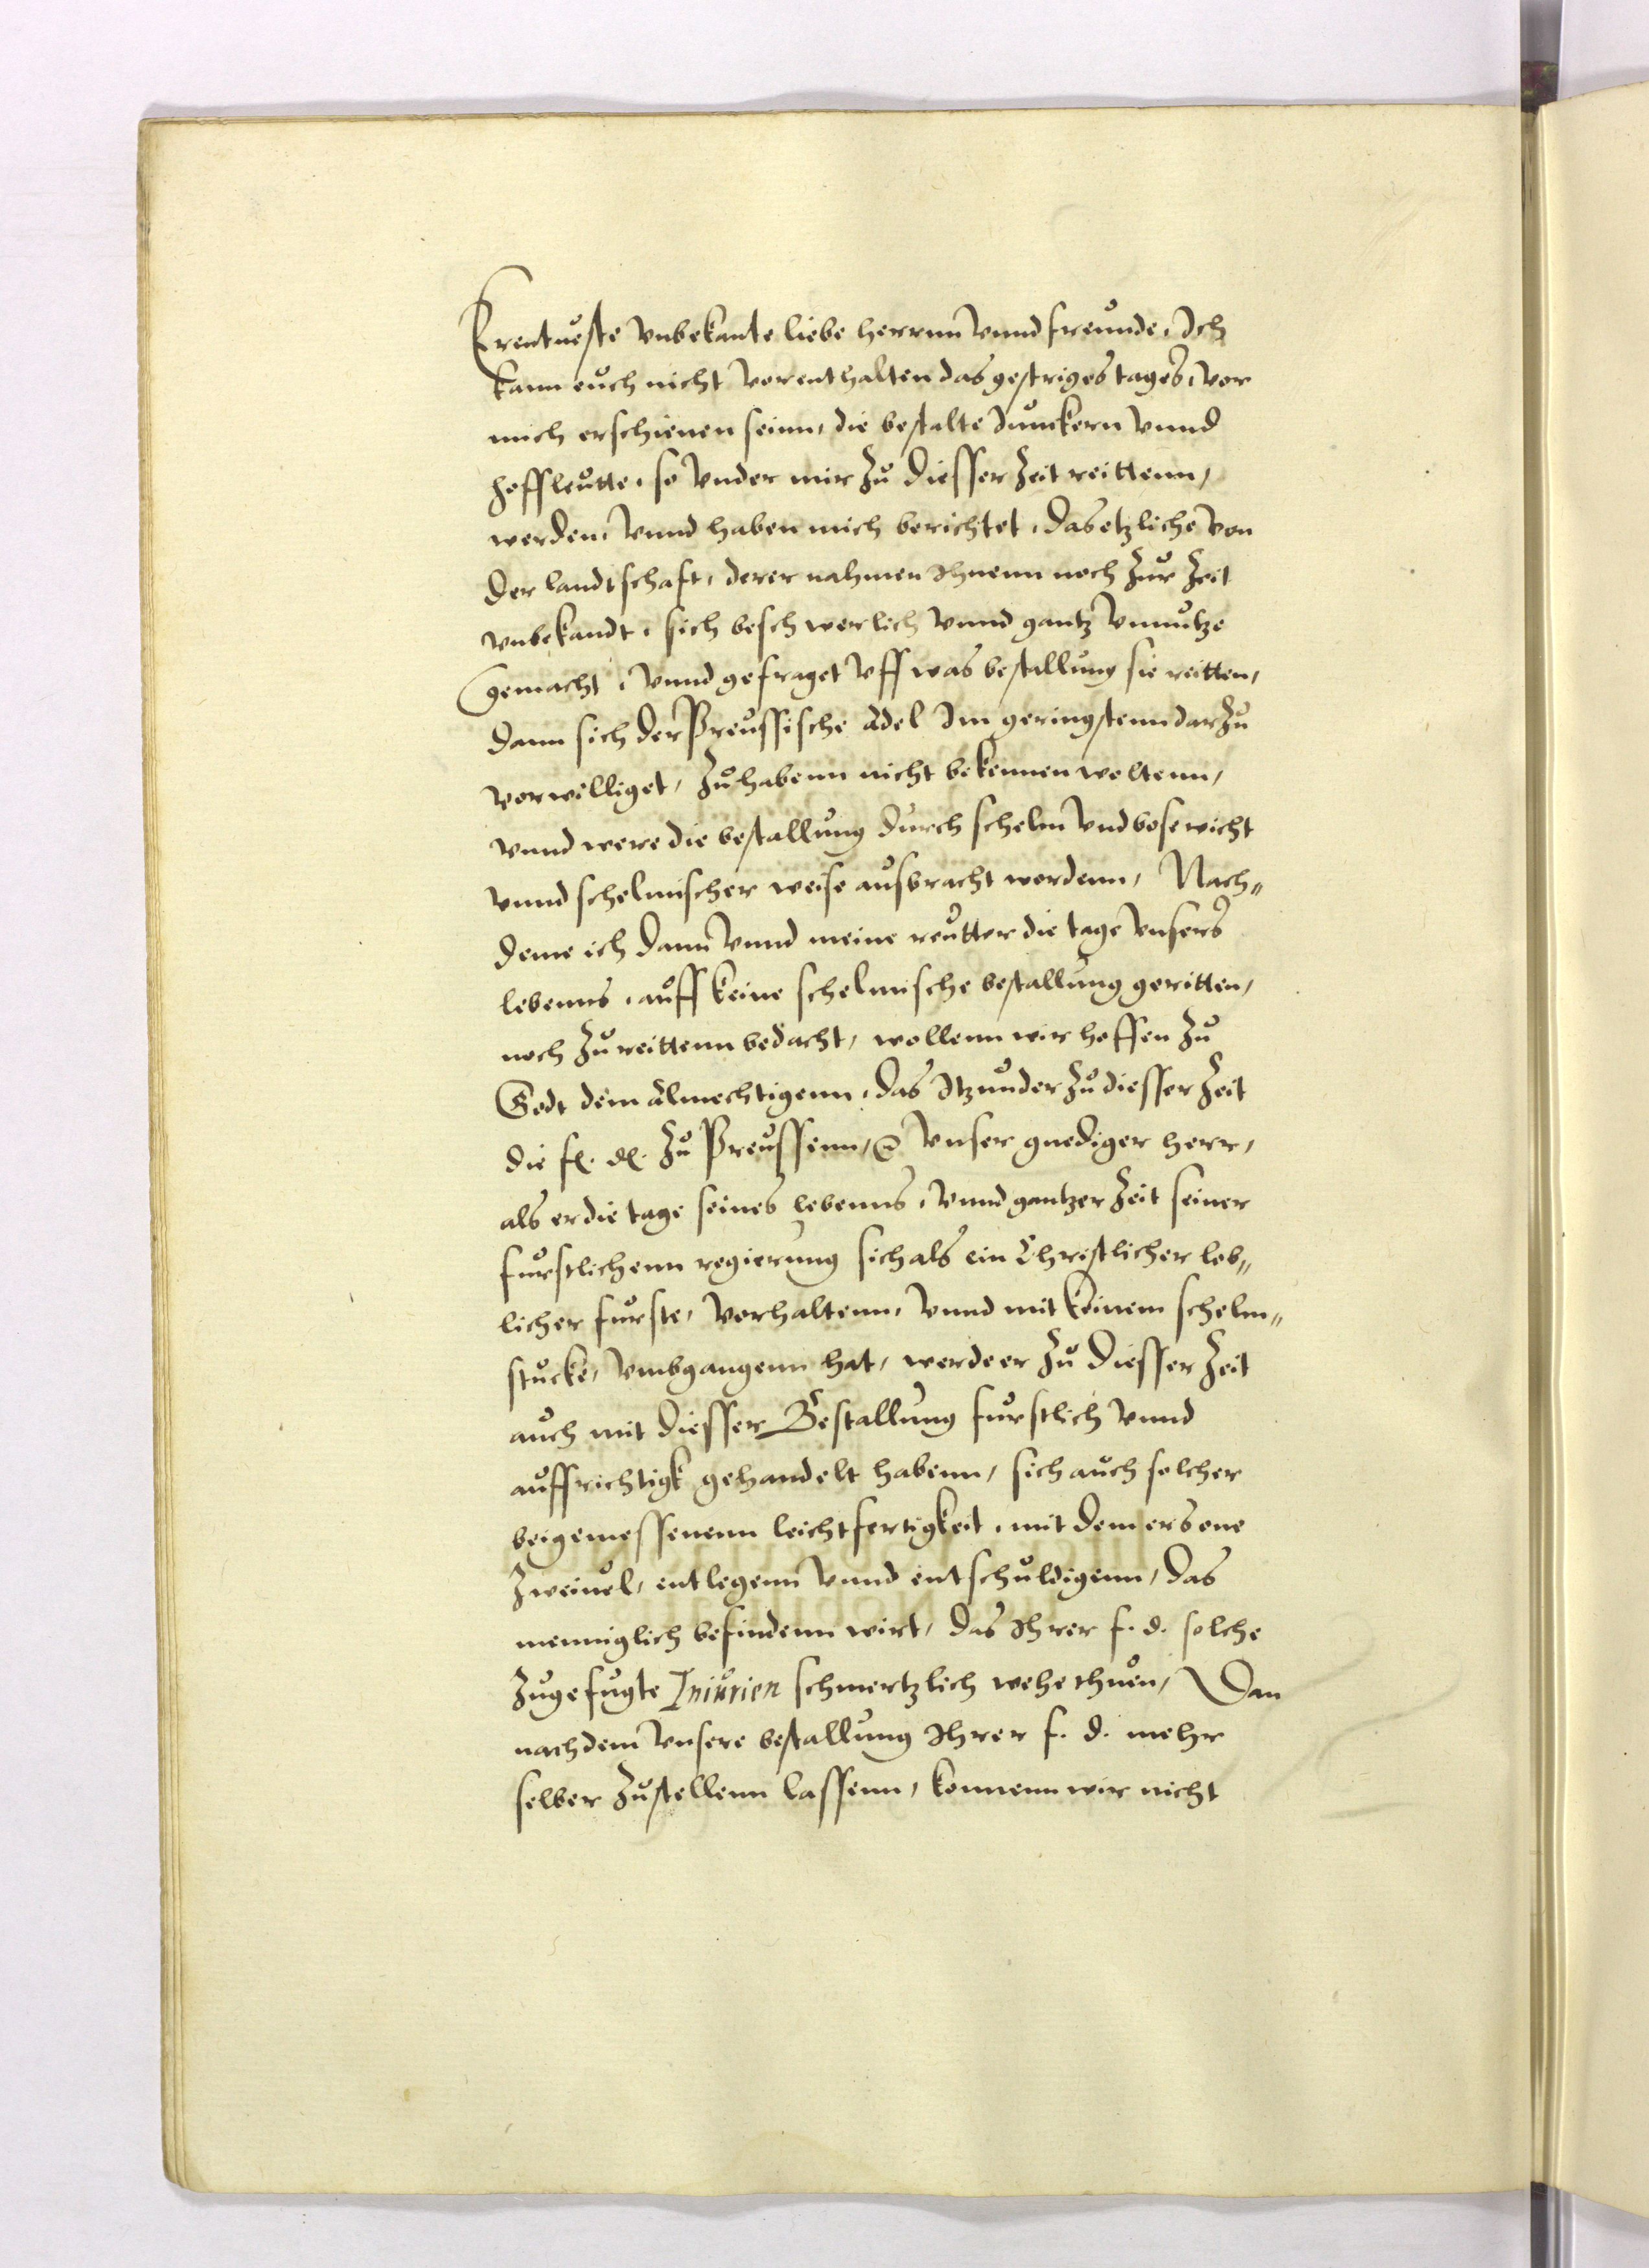 Erentueste vnbekante liebe herrnn vnnd freunde, Ich
kann euch nicht vorenthalten das gestriges tages, vor
mich erschienen seinn, die bestalte Junckern vnnd
hoffleutte, so vnder mir zu diesser zeit reittenn,
werden, vnnd haben mich berichtet, das etzliche von
der landtschafft, derer nahmen Ihnenn noch zur zeit
vnbekandt, sich beschwerlich vnnd gantz vnnutze
gemacht, vnnd gefraget vff was bestallung sie reitten,
dann sich der Preussische Adel Im geringstenn darzu
vorwilliget, zu habenn nicht bekennen woltenn,
vnnd were die bestallung durch schelm vnd bosewicht
vnnd schelmischer weise ausbracht wordenn, Nach„
deme ich dann vnnd meine reutter die tage vnsers
lebenns, auff keine schelmische bestallung geritten,
noch zu reittenn bedacht, wollenn wir hoffen zu
Godt dem almechtigenn, das Itzunder zu diesser zeit
die f. d. zu Preussenn, vnser gnediger herr,
als er die tage seines lebenns, vnnd gantzer zeit seiner
furstlichenn regierung sich als ein Christlicher lob„
licher furste, vorhaltenn, vnnd mit keinem schelm„
stucke, vmbgangenn hat, werde er zu diesser zeit
auch mit diesser Bestallung furstlich vnnd
auffrichtigk gehandelt habenn, sich auch solcher
beigemessenenn leichtfertigkeit, mit dem ers one
zweiuel, entlegenn vnnd entschuldigenn, das
menniglich befindenn wirt, das Ihrer f. d. solche
zugefugte Iniurien schmertzlich wehe thuen, Dan
nachdem vnsere bestallung Ihrer f. d. mehr
selber zustellenn lassenn, konnenn wir nicht